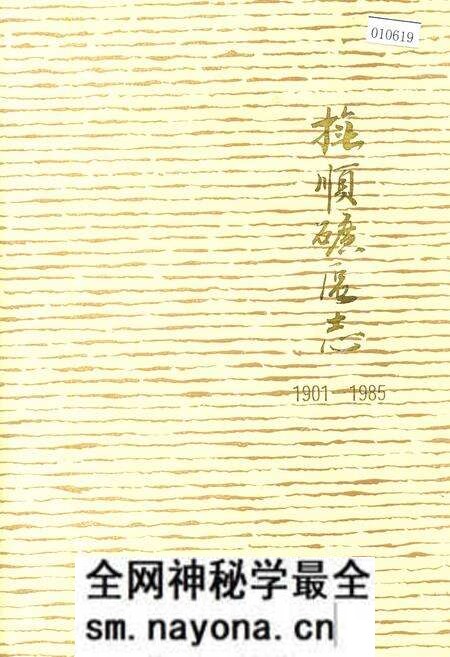 010619
撫順礦區志
1901—1985
全网神秘学最全
sm.nayona.cn